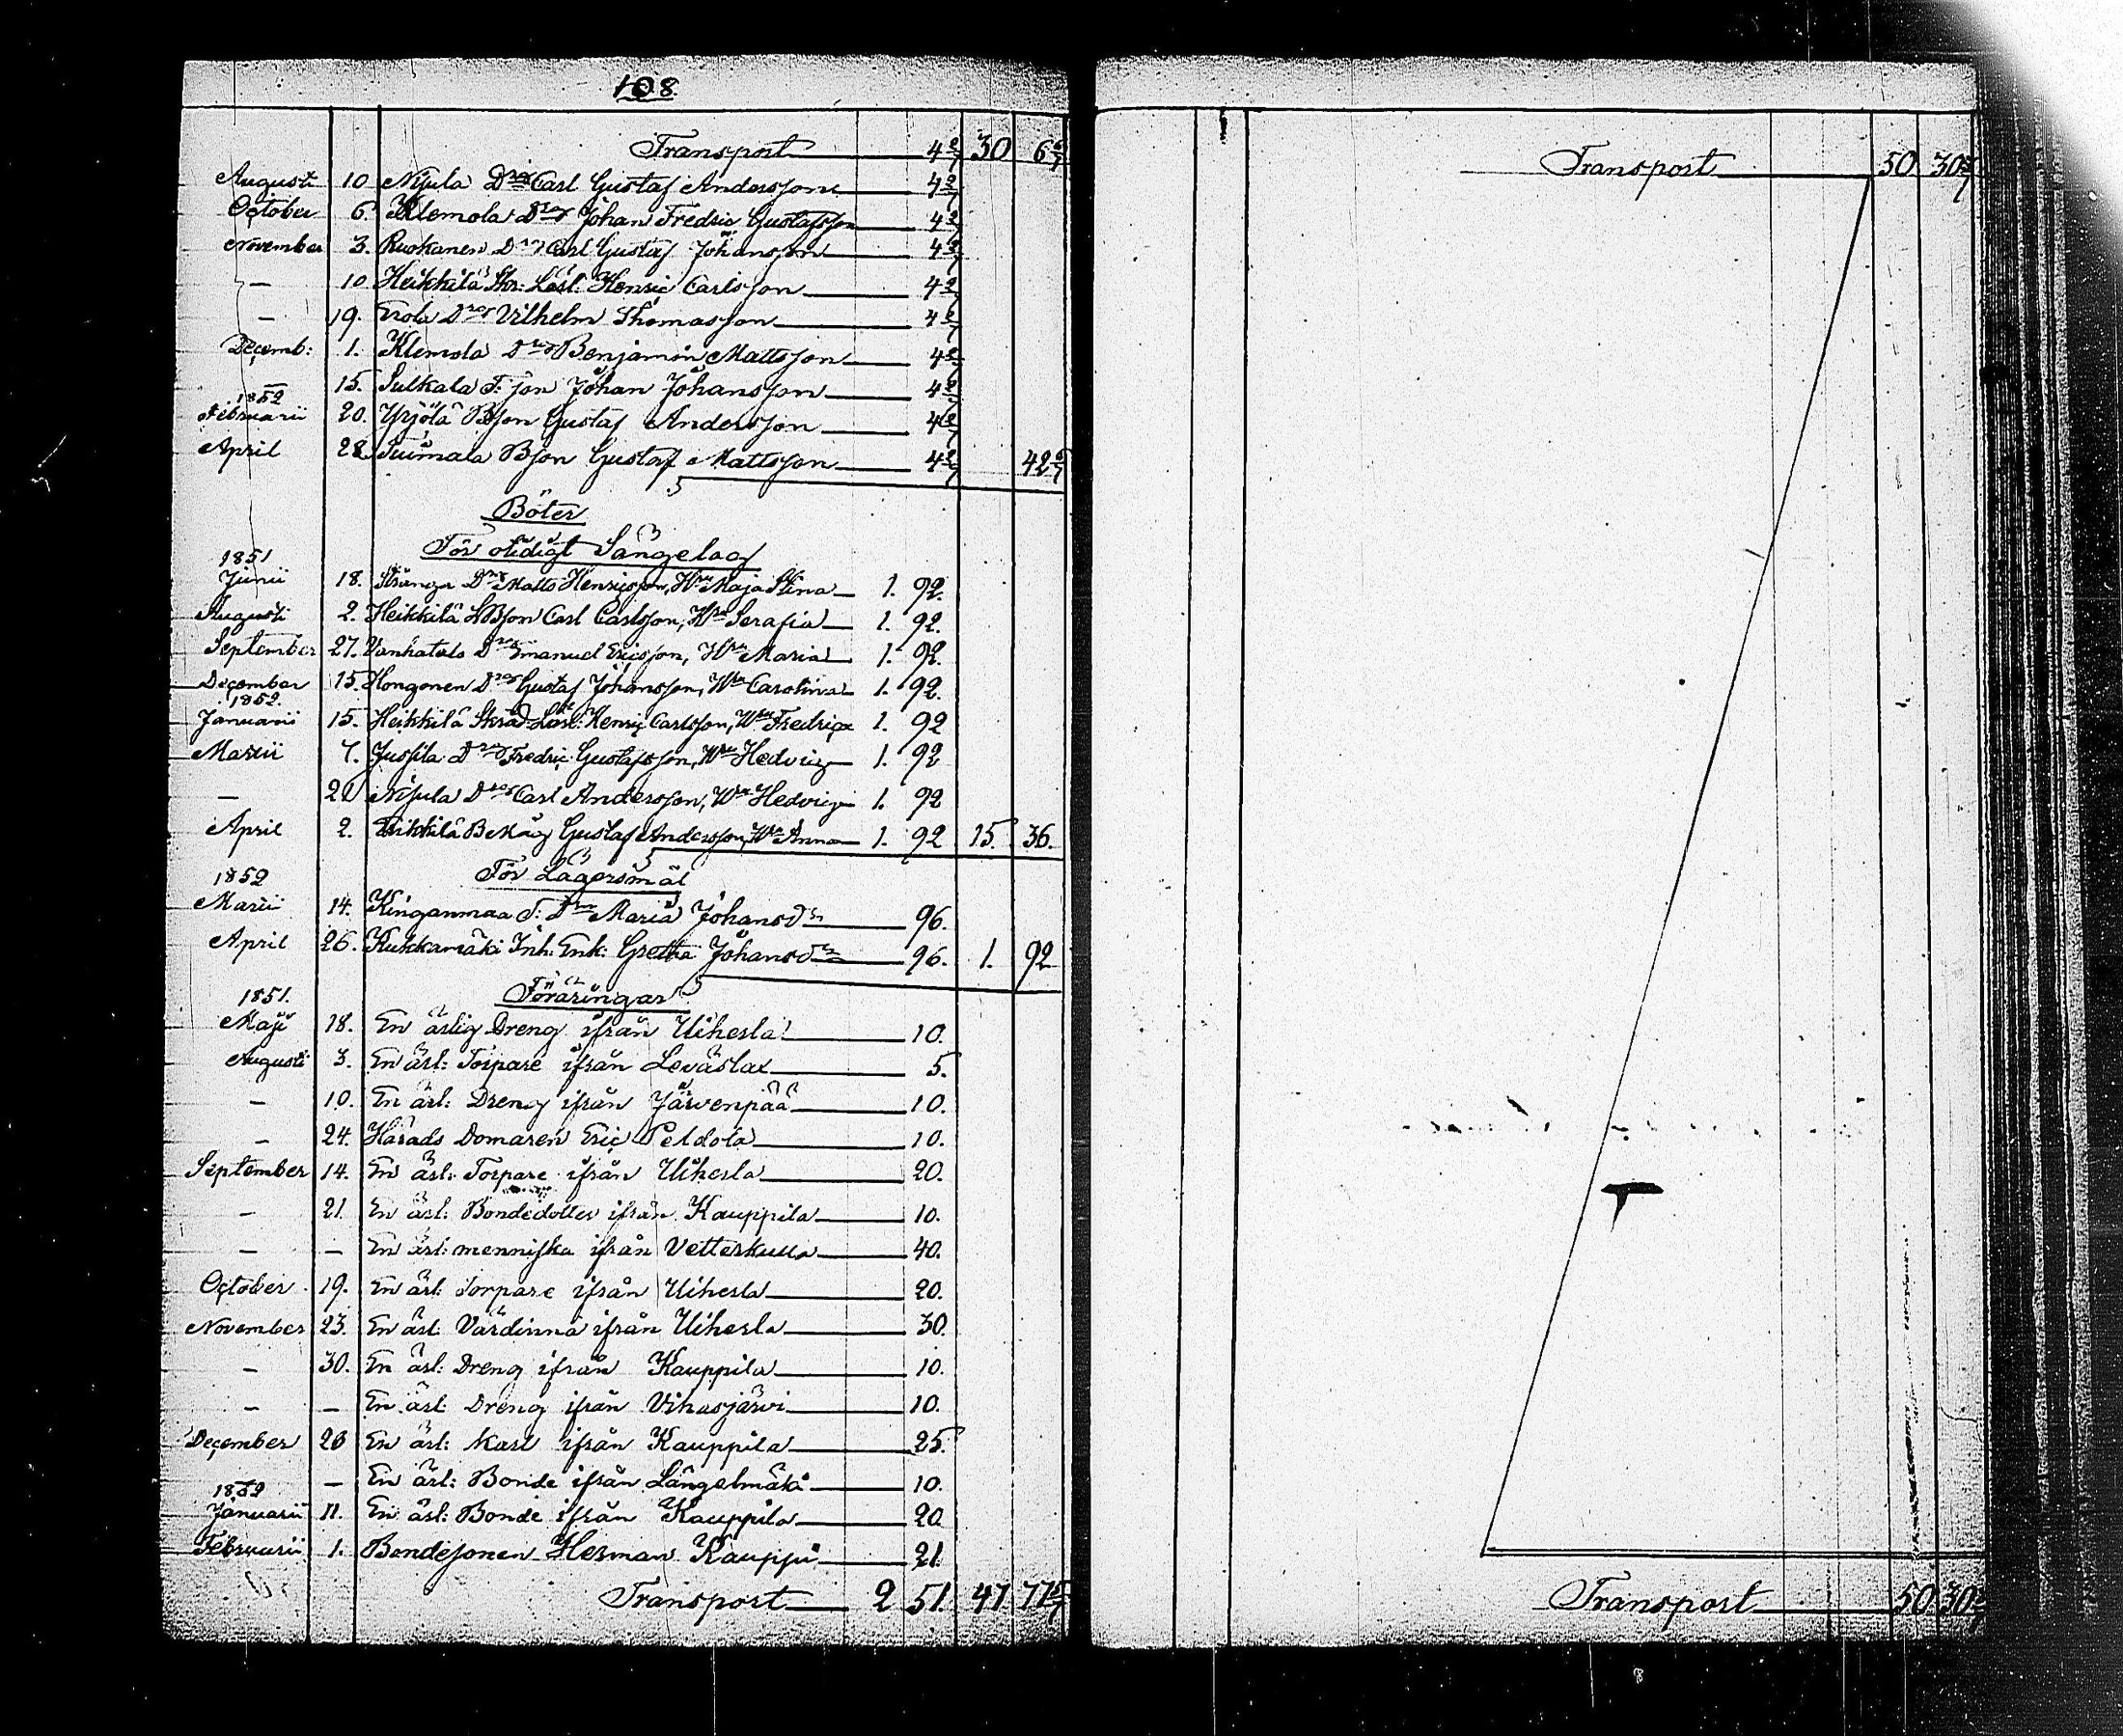 108
Transport 4 2/7 30 6 6/7
Augusti 10 Nijula Drng Carl Gustaf Andersson 4 2/7
October 6. Klemola Drng Johan Fredric Gustafsson 4 2/7
November 3. Ruokanen Drng Carl Gustaf Johansson 4 2/7
— 10. Heikkilä Skr: Lärl: Henric Carlsson 4 2/7
— 19. Erola Drng Vilhelm Thomasson 4 2/7
Decemb: 1. Klemola Drng Benjamin Mattsson 4 2/7
— 15. Sulkala T: son Johan Johansson 4 2/7
1852
Februarii 20. Yrjölä Bson Gustaf Andersson 4 2/7
April 28. Tuimala Bson Gustaf Mattsson 4 2/7 42 6/7
Böter
För otidigt Sängelag
1851
Junii 18. Stränga Drng Matts Henricsson, Hru Maja Stina 1. 92.
Augusti 2. Heikkilä Bson Carl Carlsson, Hru Serafia 1. 92.
September 27. Vanhatalo Drng Emanuel Ericsson, Hru Maria 1. 92.
December 15. Hongonen Drng Gustaf Johansson, Hru Carolina 1. 92.
1852.
Januarii 15. Heikkilä Skräd: Lärl: Henric Carlsson, Hru Fredrica 1. 92
Martii 7. Jussila Drng Fredric Gustafsson, Hru Hedvig 1. 92
— 21 Nijula Drng Carl Andersson, Hru Hedvig 1. 92
April 2. Heikkilä B Måg Gustaf Andersson, Hru Anna 1. 92 15. 36.
För Lägersmål
1852
Martii 14. Kinganmaa T: Drn Maria Johansdr 96.
April 26. Kukkamäki Inh: Enk: Gretha Johansdr 96. 1. 92
Föräringar
1851.
Maji 18. En ärlig Dreng ifrån Uiherla 10.
Augusti 3. En ärl: Torpare ifrån Leväslax 5.
— 10. En ärl: Dreng ifrån Järvenpää 10.
— 24. Härads Domaren Eric Peldola 10.
September 14. En ärl: Torpare ifrån Uiherla 20.
— 21. En ärl: Bondedotter ifrån Kauppila 10.
— — En ärl: menniska ifrån Vetterkulla 40.
October 19. En ärl: Torpare ifrån Uiherla 20.
November 23. En ärl: Värdinna ifrån Uiherla 30.
— 30. En ärl: Dreng ifrån Kauppila 10.
— — En ärl: Dreng ifrån Vihasjärvi 10.
December 26 En ärl: Karl ifrån Kauppila 25.
— En ärl: Bonde ifrån Längelmäki 10.
1852
Januarii 11. En ärl: Bonde ifrån Kauppila 20
Februarii 1. Bondesonen Herman Kauppi 21.
Transport 2 51. 47. 77 5/7
Transport 50 30 2/7
Transport 50 30 2/7